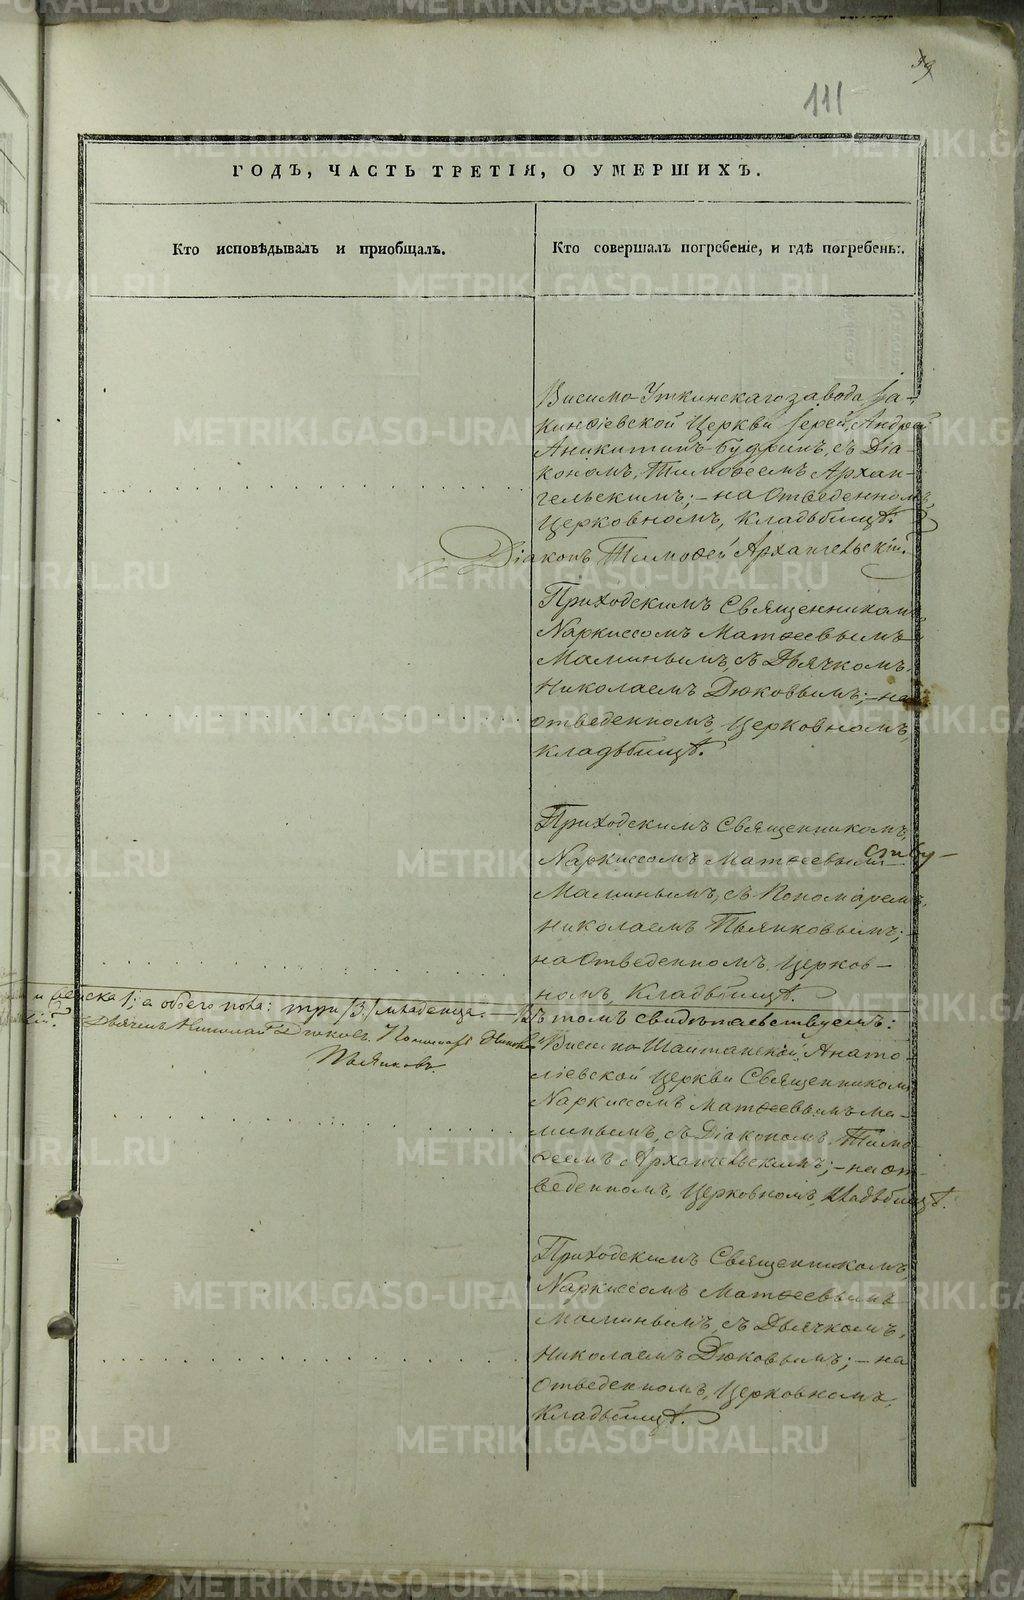 111
ГОДЪ, ЧАСТЬ ТРЕТІЯ, О УМЕРШИХЪ.
Кто исповѣдывалъ и пріобщалъ.
Кто совершалъ погребеніе, и гдѣ погребены.
Висимо-Уткинскаго завода Іа-
кинѳіевской Церкви Іерей, Андрей
Аникитинъ Будринъ, съ Діа-
кономъ, Тимоѳеемъ Архан-
гельскимъ; - на Отведенномъ,
Церковномъ, Кладьбищѣ.
Діаконъ Тимоѳей Архангельскій.
Приходскимъ Священникомъ,
Наркиссомъ Матѳеевымъ
Маминымъ, съ Дьячкомъ,
Николаемъ Дюковымъ; - на
отведенномъ, Церковномъ,
кладьбищѣ.
Приходскимъ Священникомъ,
Наркиссомъ Матѳеевымъ
Маминымъ, съ Пономаремъ,
Николаемъ Пьянковымъ; -
на Отведенномъ, Церков-
номъ, Кладьбищѣ.
и женска 1: а обоего пола: три /3/ младенца. - Въ томъ свидѣтельствуемъ:
Дьячекъ Николай Дюковъ. Пономарь Николай
Пьянковъ.
Висимо-Шайтанской, Анато-
ліевской Церкви Священникомъ
Наркиссомъ Матѳеевымъ Ма-
минымъ, съ Діакономъ, Тимо-
ѳеемъ Архангельскимъ; - на от-
веденномъ, Церковномъ, кладьбищѣ.
Приходскимъ Священникомъ,
Наркиссомъ Матѳеевымъ
Маминымъ, съ Дьячкомъ,
Николаемъ Дюковымъ; - на
Отведенномъ, Церковномъ,
Кладьбищѣ.
METRIKI.GASO-URAL.RU